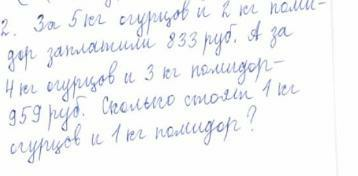 2. За 5 кг огурцов и 2 кг поми-
дор заплатили 833 руб. А за
4 кг огурцов и 3 кг помидор-
959 руб. Сколько стоят 1 кг
огурцов и 1 кг помидор?